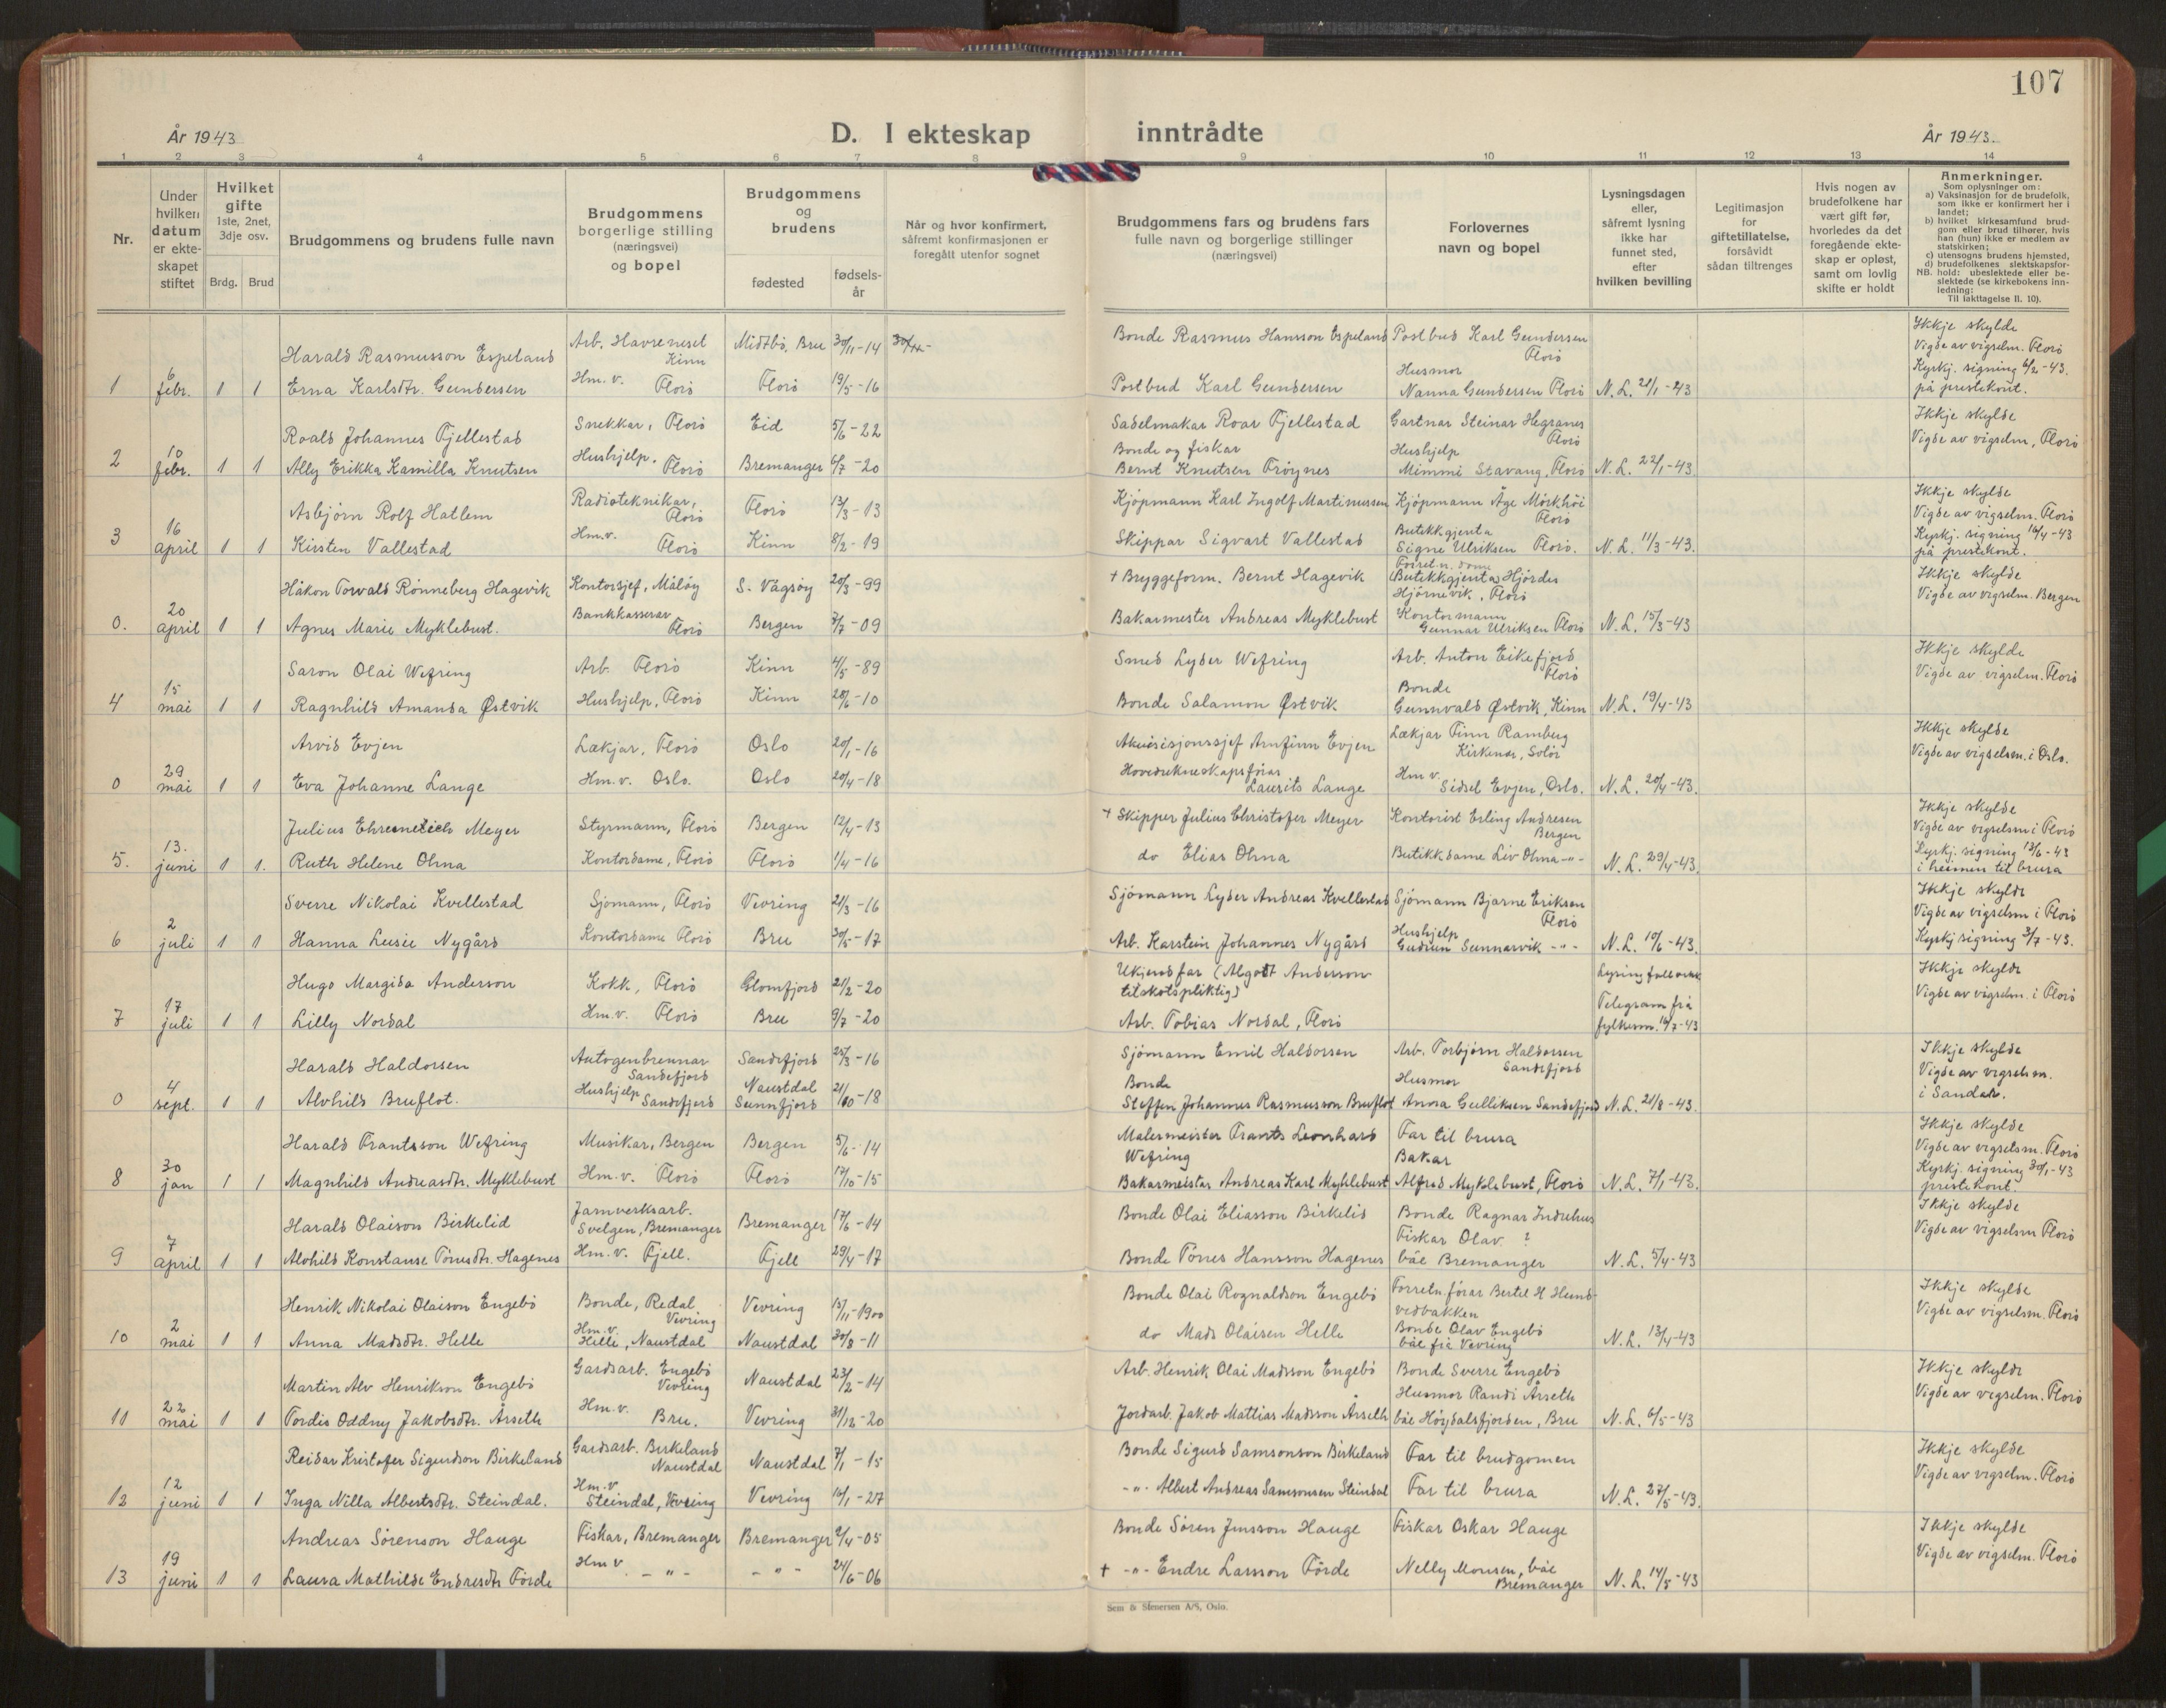 107
År 1943
D. I ekteskap inntrådte
År 1943.
1 2 3 4 5 6 7 8 9 10 11 12 13 14
Nr.
Under hvilken datum er ekteskapet stiftet
Hvilket gifte 1ste, 2net, 3dje osv.
Brdg. Brud
Brudgommens og brudens fulle navn
Brudgommens borgerlige stilling (næringsvei) og bopel
Brudgommens og brudens
fødested
fødselsår
Når og hvor konfirmert, såfremt konfirmasjonen er foregått utenfor sognet
Brudgommens fars og brudens fars fulle navn og borgerlige stillinger (næringsvei)
Forlovernes navn og bopel
Lysningsdagen eller, såfremt lysning ikke har funnet sted, efter hvilken bevilling
Legitimasjon for giftetillatelse, forsåvidt sådan tiltrenges
Hvis nogen av brudefolkene har vært gift før, hvorledes da det foregående ekteskap er opløst, samt om lovlig skifte er holdt
Anmerkninger.
Som oplysninger om:
a) Vaksinasjon for de brudefolk, som ikke er konfirmert her i landet;
b) hvilket kirkesamfund brudgom eller brud tilhører, hvis han (hun) ikke er medlem av statskirken;
c) utensogns brudens hjemsted,
d) brudefolkenes slektskapsforhold: ubeslektede eller beslektede (se kirkebokens innledning:
NB. Til iakttagelse II. 10).
Harald Rasmusson Espeland Arb. Havreneset Kinn Midtbö, Bru 30/11-14 Bonde Rasmus Hansson Espeland Postbud Karl Gundersen Florö Ikkje skylde
Vigde av vigselm. Florö
1 6 febr. 1 1 Erna Karlsdtr. Gundersen Hm. v. Florö Florö 19/5-16 Postbud Karl Gundersen Husmor Nanna Gundersen Florö N. L. 21/1-43 Kyrkj. signing 6/2-43. på prestekont.
Roald Johannes Fjellestad Snekkar, Florö Eid 5/6-22 Sadelmakar Roar Fjellestad Gartnar Steinar Hegranes Florö Ikkje skylde
2 10 febr. 1 1 Ally Erikka Kamilla Knutsen Hushjelp. Florö Bremanger 6/7-20 Bonde og fiskar Bernt Knutsen Fröynes Hushjelp Mimmi Stavang, Florö N. L. 22/1-43 Vigde av vigselm, Florö
Asbjörn Rolf Hatlem Radioteknikar, Florö Florö 13/3-13 Kjöpmann Karl Ingolf Martinussen Kjöpmann Åge Mörkhöi Florö Ikkje skylde
Vigde av vigselm. Florö
3 16 april 1 1 Kirsten Vallestad Hm.v. Florö Kinn 8/2-19 Skippar Sigvart Vallestad Butikkgjenta Signe Ulriksen Florö. N. L. 11/3-43. Kyrkj. signing 16/4-43 på prestekont.
Håkon Torvald Rönneberg Hagevik Kontorsjef, Måløy S. Vågsöy 20/3-99 + Bryggeform. Bernt Hagevik Butikkgjenta Hjördis Hjörnevik, Florö Ikkje skylde
0. 20 april 1 1 Agnes Marie Myklebust. Bankkasserar Florö Bergen 7/7-09 Bakarmester Andreas Myklebust Kontormann Gunnar Ulriksen Florö N. L. 15/3-43 Vigde av vigselm. Bergen
Saron Olai Wefring Arb. Florö Kinn 4/5-89 Smed Lyder Wefring Arb. Anton Eikefjord Florö Ikkje skylde
4 15 mai 1 1 Ragnhild Amanda Østvik Hushjelp, Florö Kinn 28/6-10 Bonde Salamon Østvik Bonde Gunnvald Østvik, Kinn N. L. 19/4-43 Vigde av vigselm. Florö
Arvid Evjen Lækjar, Florö Oslo 20/1-16 Akvisisjonssjef Arnfinn Evjen Lækjar Finn Ramberg Kirkenær, Solör Ikkje skylde
0 29 mai 1 1 Eva Johanne Lange Hm.v. Oslo. Oslo 20/4-18 Hovedrekneskapsförar Laurits Lange Hm v. Sidsel Evjen, Oslo. N. L. 20/4-43. Vigde av vigselsm. i Oslo.
Julius Meyer Styrmann, Florö Bergen 12/4-13 + Skipper Julius Christofer Meyer Kontorist Erling Andresen Bergen Ikkje skylde
Vigde av vigselsm i Florö
5. 13. juni 1 1. Ruth Helene Ohna Kontordame, Florö Florö 1/4-16 do Elias Ohna Butikkdame Liv Ohna -"- N. L. 29/4-43. Kyrkj. signing 13/6-43 i heimen til brura
Sverre Nikolai Kvellestad Sjömann, Florö Vevring 21/3-16 Sjömann Lyder Andreas Kvellestad Sjömann Bjarne Eriksen Florö Ikkje skylde
Vigde av vigselsm i Florö
6 2 juli 1 1 Hanna Lusie Nygård Kontordame Florö Bru 30/5-17 Arb. Karstein Johannes Nygård Hushjelp Gudrun Sunnarvik -"- N. L. 10/6-43. Kyrkj signing 3/7-43.
Hugo Margido Anderson Kokk, Florö Glomfjord 21/2-20 Ukjend far (Algott Anderson tilskotspliktig) Ikkje skylde
7 17 juli 1 1 Lilly Nordal Hm.v. Florö Bru 9/7-20 Arb. Tobias Nordal, Florö Telegram frå fylkesm. 16/7-43 Vigde av vigselm. i Florö
Harald Haldorsen Autogenbrennar Sandefjord Sandefjord 25/3-16 Sjömann Emil Haldorsen Arb. Torbjörn Haldorsen Sandefjord Ikkje skylde
0 4 sept. 1 1 Alvhild Bruflot. Hushjelp Sandefjord Naustdal Sunnfjord 21/10-18 Bonde Steffen Johannes Rasmusson Bruflot Husmor Anna Gulliksen Sandefjord N. L. 21/8-43. Vigde av vigselsm. i Sandar.
Harald Frantsson Wefring Musikar, Bergen Bergen 5/6-14 Malermeister Frants Leonhard Wefring Far til brura Ikkje skylde
Vigde av vigselsm. Florö
8 30 jan 1 1 Magnhild Andreasdtr. Myklebust Hm.v. Florö Florö 17/10-15 Bakarmeister Andreas Karl Myklebust Bakar Alfred Myklebust, Florö N. L. 7/1-43. Kyrkj. signing 30/1-43 prestekont.
Harald Olaison Birkelid Jarnverksarb. Svelgen, Bremanger Bremanger 17/6-14 Bonde Olai Eliasson Birkelid Bonde Ragnar Indrehus Ikkje skylde
9 7 april 1 1 Alvhild Konstanse Tönesdtr. Hagenes Hm.v. Fjell. Fjell 29/4-17 Bonde Tönes Hansson Hagenes Fiskar Olav ? båe Bremanger N. L. 5/4-43 Vigde av vigselsm Florö
Henrik Nikolai Olaison Engebö Bonde, Redal Vevring Vevring 15/11-1900 Bonde Olai Rognaldson Engebö Forretn.förar Bertel H Hundvedbakken Ikkje skylde
10 2 mai 1 1 Anna Madsdtr. Helle Hm.v. Helle, Naustdal Naustdal 30/8-11 do Mads Olaisen Helle Bonde Olav Engebö båe frå Vevring N. L. 13/4-43 Vigde av vigselsm. Florö
Martin Alv Henrikson Engebö Gardsarb. Engebö Vevring Naustdal 23/2-14 Arb. Henrik Olai Madsson Engebö Bonde Sverre Engebö Ikkje skylde
11 22 mai 1 1 Tordis Oddny Jakobsdtr. Årseth Hm.v. Bru. Vevring 31/12-20 Jordarb. Jakob Mattias Madsson Årseth Husmor Randi Årseth båe Höydalsfjorden, Bru N. L. 6/5-43 Vigde av vigselm. Florö
Reidar Kristofer Sigurdson Birkeland Gardsarb. Birkeland Naustdal Naustdal 7/1-15 Bonde Sigurd Samsonson Birkeland Far til brudgomen Ikkje skylde
12 12 juni 1 1 Inga Nilla Albertsdtr. Steindal. Hm.v Steindal, Vevring Vevring 16/1-27 -"- Albert Andreas Samsonsen Steindal Far til brura N. L. 27/5-43. Vigde av vigselm. Florö
Andreas Sörenson Hauge Fiskar, Bremanger Bremanger 9/4-05 Bonde Sören Jensson Hauge Fiskar Oskar Hauge Ikkje skylde
13 19 juni 1 1 Laura Mathilde Endresdtr Förde Hm v -"- -"- 24/6-06 + -"- Endre Larsson Förde Nelly Monsen, båe Bremanger N. L. 14/5-43 Vigde av vigselm. Florö
Sem & Stenersen A/S, Oslo.